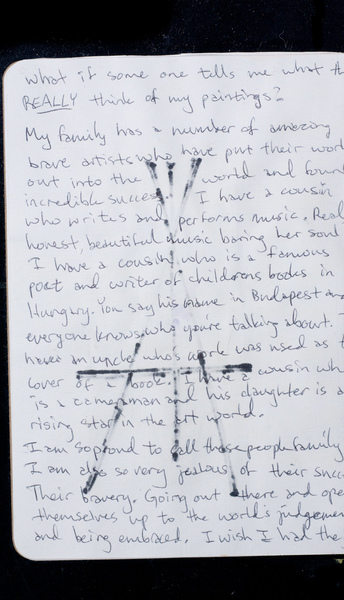 what if some one tells me what th
REALLY think of my paintings?
My family has a number of amazing
brave artists who have put their work
out into the world and found
incredible success. I have a cousin
who writes and performs music. Real
honest, beautiful music baring her soul
I have a cousin who is a famous
poet and writer of childrens books in
Hungary. You say his name in Budapest and
everyone knows who you're talking about. I
have an uncle who's work was used as t
cover of a book. I have a cousin wh
is a cameraman and his daughter is a
rising star in the art world.
I am so proud to call those people family
I am also so very jealous of their succ
Their bravery. Going out there and ope
themselves up to the world's judgemen
and being embraced. I wish I had the